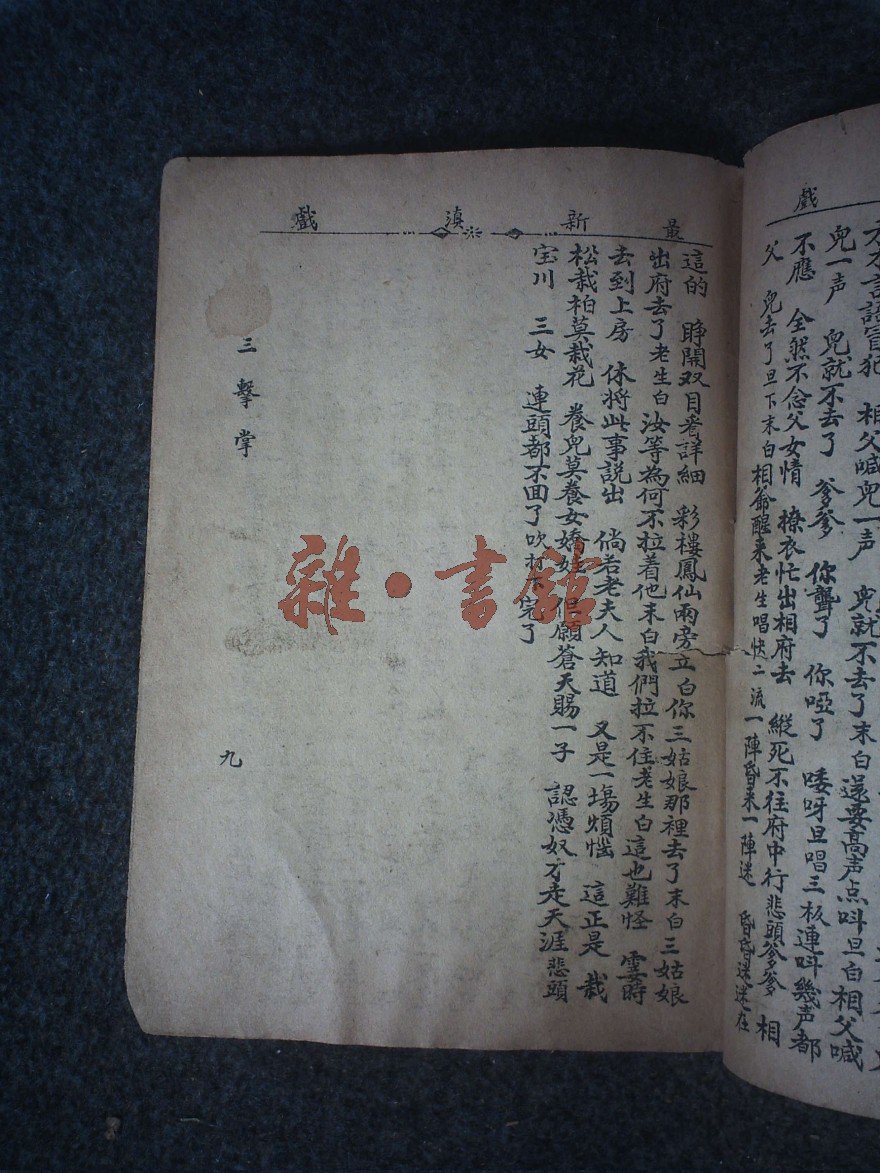 戲
才才言語冒犯 相父喊兒一声 兒就不去了末白 還要高声点呌旦白相父喊
兒一声 兒就不去了 爹爹 你聾了 你啞了 唩呀旦唱三板連呌幾声都
不應 全然不念父女情 撩衣忙出相府去 縱死不往府中行悲頭爹爹 相
父 兒去了旦下末白相爺醒来老生唱快二流一陣昏来一陣迷 昏昏迷迷在
最新滇戲
這的 睜開双目看詳細 彩樓鳳仙兩旁立白你三姑娘那裡去了末白三姑娘
出府去了老生白 汝等為何不拉着他末白我們拉不住老生白這也難怪 霎時
去到上房 休将此事説出 倘若老夫人知道 又是一塲煩惱 這正是 栽
松栽柏莫栽花 養兒莫養女嬌娃 但願蒼天賜一子 認憑奴才走天涯悲頭
宝川 三女 連頭都不回了吹打下完了
三擊掌
九
雜·書館